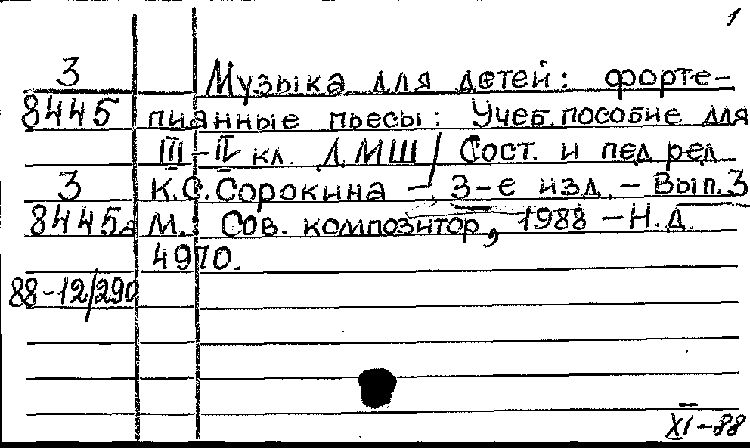 1
3 Музыка для детей: форте-
8445 пианные пьесы: Учеб. пособие для
III-IV кл. ДМШ / Сост. и пед. ред.
3 К.С. Сорокина - 3-е изд. - Вып. 3
8445а М.: Сов. композитор, 1988 - Н.д.
4970.
88-12/290
XI-88